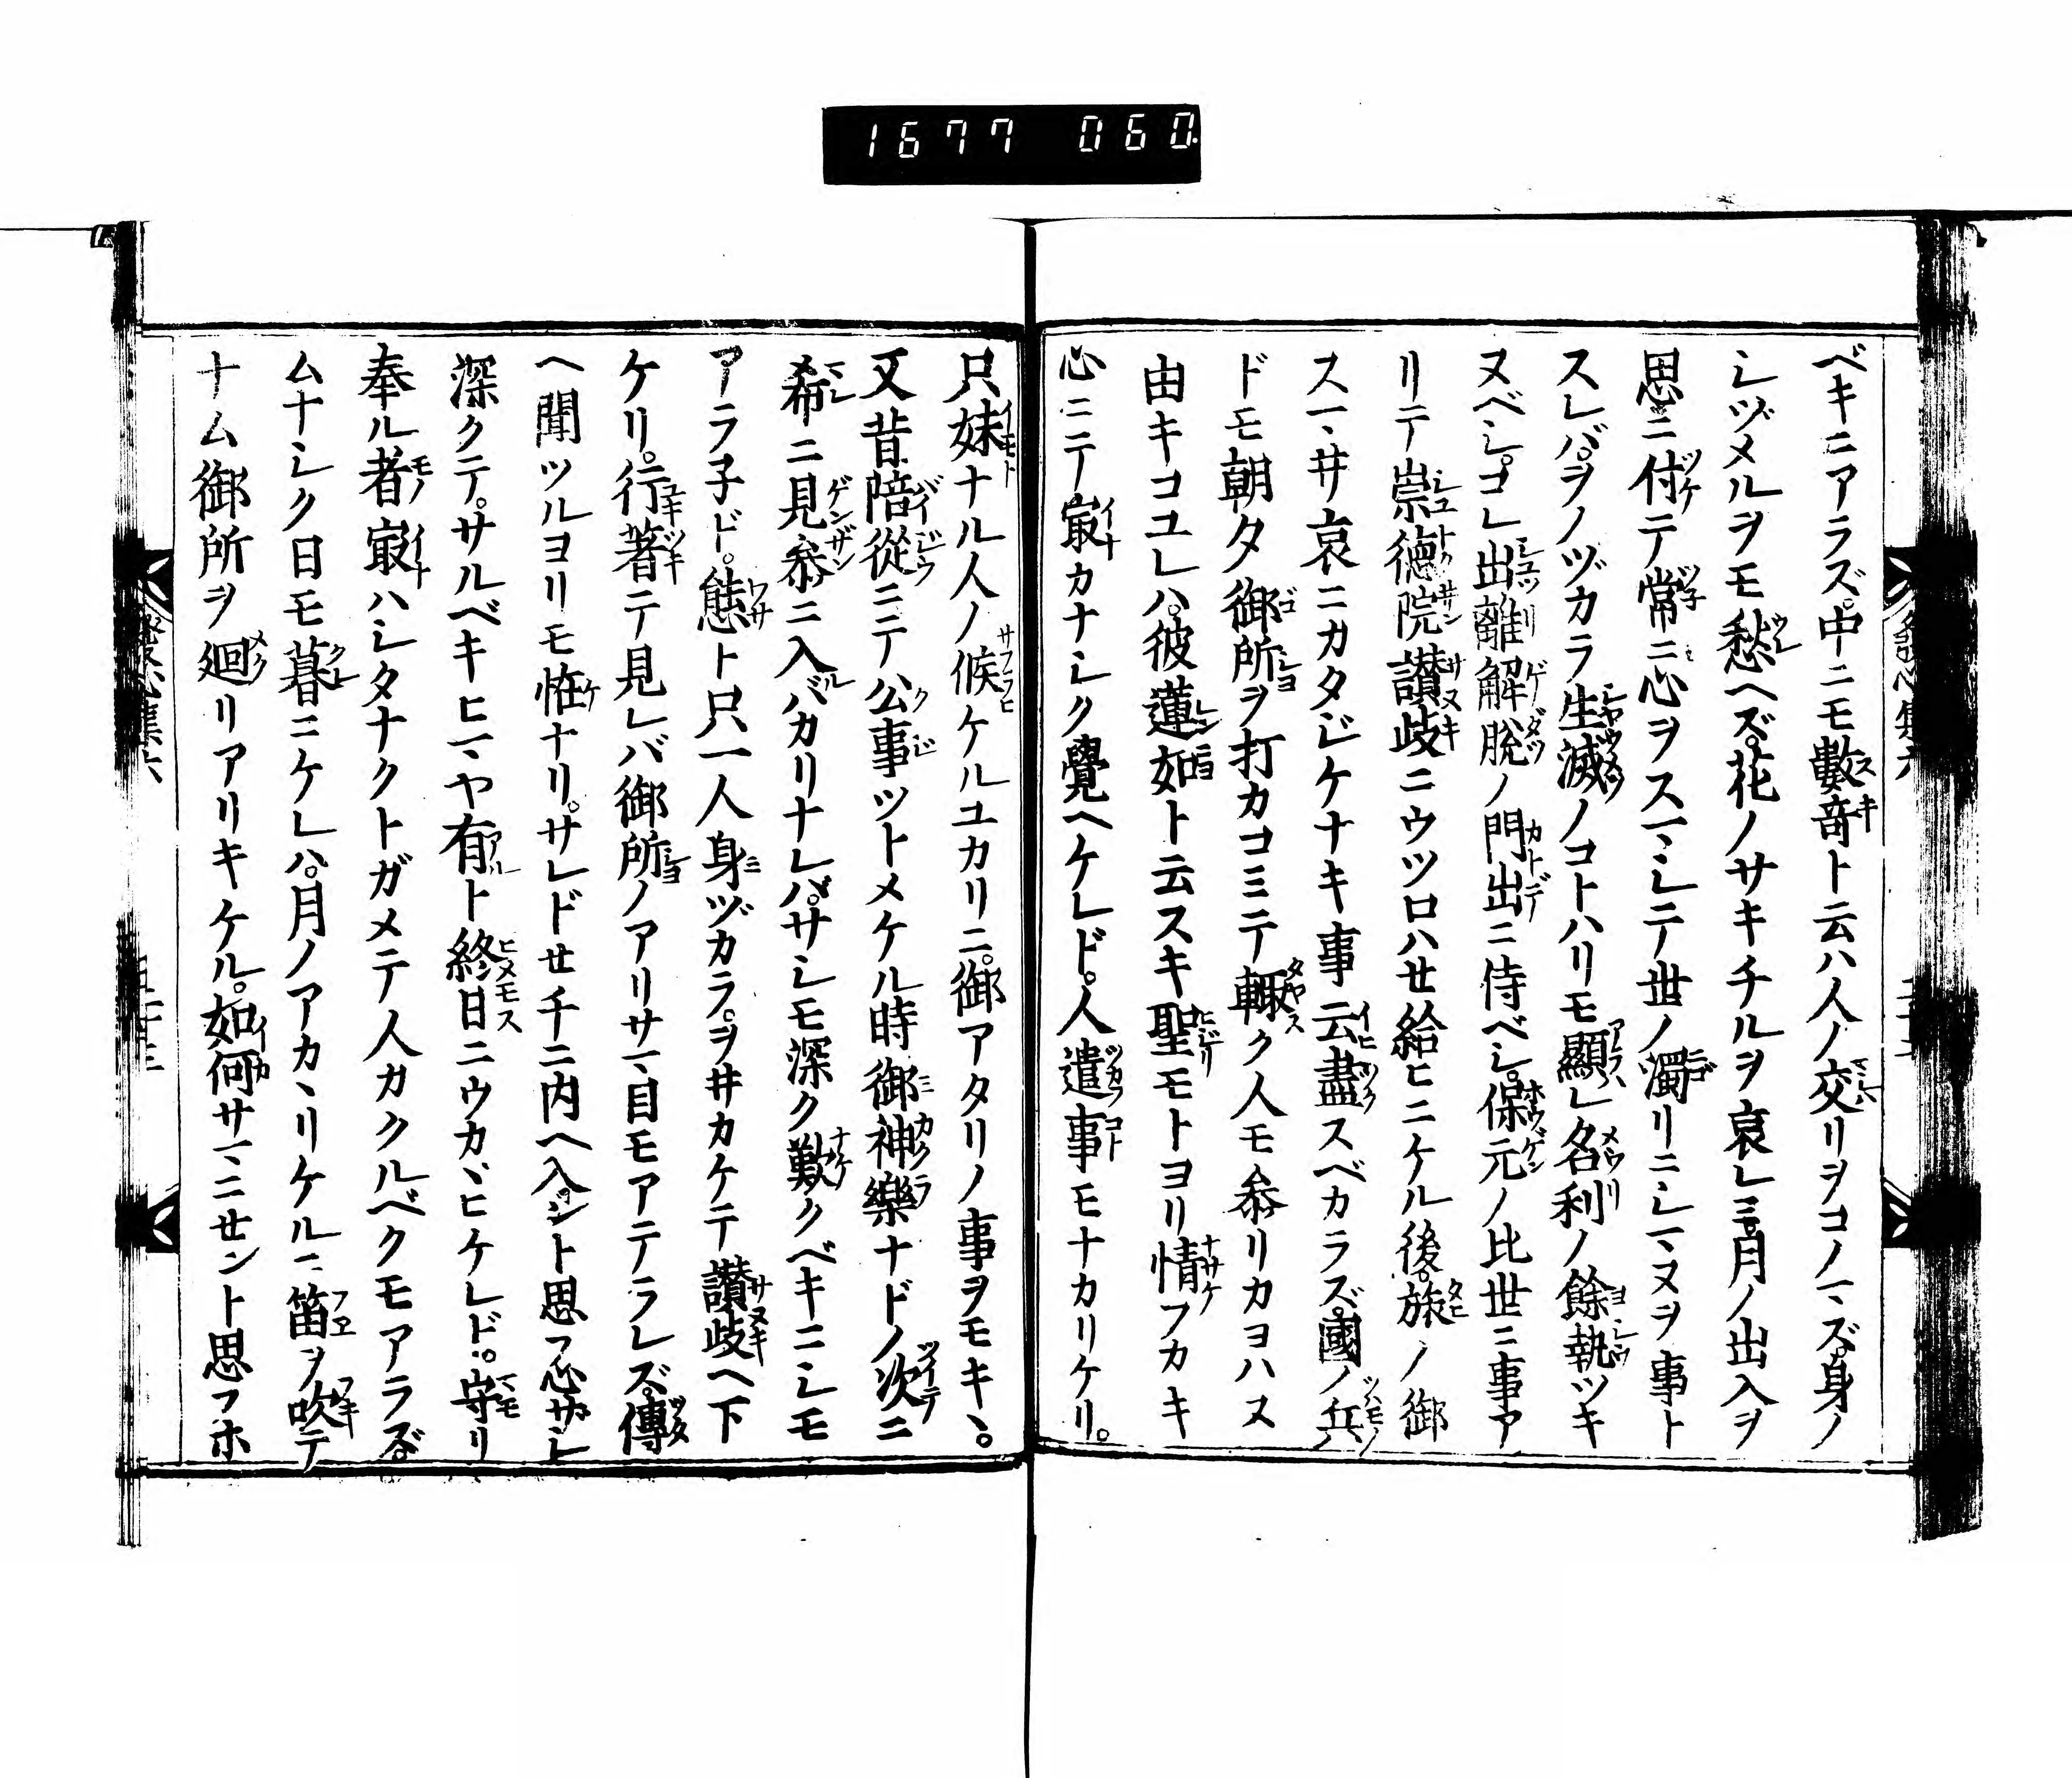 1677 060
ベキニアラズ。中ニモ數奇ト云ハ人ノ交リヲコノマズ。身ノ
シヅメルヲモ愁ヘズ。花ノサキチルヲ哀レミ。月ノ出入ヲ
思ニ付テ常ニ心ヲスマシテ世ノ濁リニシマヌヲ事ト
スレバ。ヲノヅカラ生滅ノコトハリモ顯レ名利ノ餘執ツキ
ヌベシ。コレ出離解脱ノ門出ニ侍ベシ。保元ノ比世ニ事ア
リテ崇徳院讃岐ニウツロハせ給ヒニケル後。旅ノ御
スマヽサ哀ニカタジケナキ事云盡スベカラズ。國ノ兵
ドモ朝タ御所ヲ打カコミテ輙ク人モ叅リカヨハヌ
由キコユレハ。彼蓮如ト云スキ聖モトヨリ情フカキ
心ニテ最カナシク覺ヘケレド。人遣事モナカリケリ。
只妹ナル人ノ候ケルユカリニ。御アタリノ事ヲモキヽ。
又昔陪從ニテ公事ツトメケル時御神樂ナドノ次ニ
希ニ見叅ニ入バカリナレバ。サシモ深ク歎クベキニシモ
アラ子ド。態ト只一人身ヅカラ。ヲヰカケテ讃岐ヘ下
ケリ。行著テ見レバ御所ノアリサマ目モアテラレズ。傳
ヘ聞ツルヨリモ恠ナリ。サレドせチニ内ヘ入ント思フ心ザシ
深クテ。サルベキヒマヤ有ト終日ニウカヾヒケレド。守リ
奉ル者最ハシタナクトガメテ人カクルベクモアラズ。
ムナシク日モ暮ニケレハ。月ノアカヽリケルニ笛ヲ吹テ
ナム御所ヲ廻リアリキケル。如何サマニせント思フホ